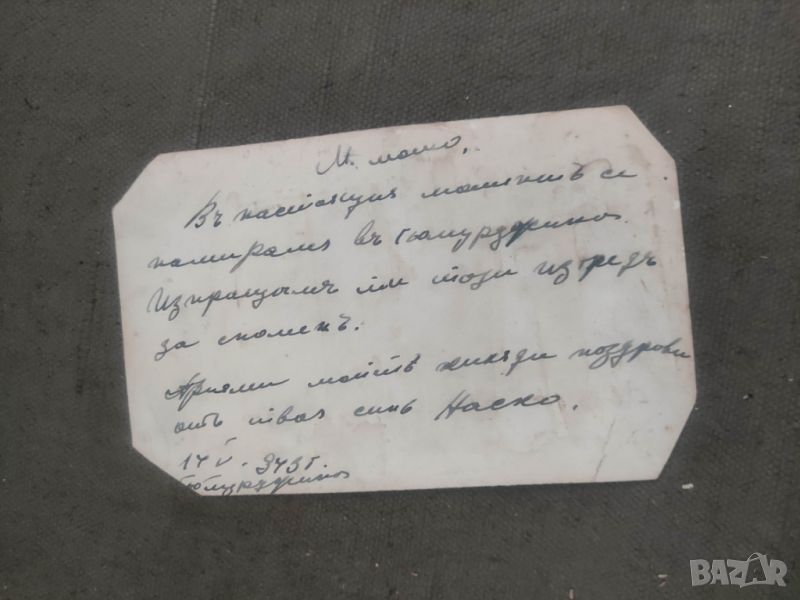 М. мамо,
Въ настоящия моментъ се
намирамъ въ Гюмурджина
Изпращамъ ти този изгредъ
за споменъ.
Приеми моитѣ хиляди поздрави
отъ твоя синъ Наско.
14 V. 943 г.
Гюмурджина
BAZAR